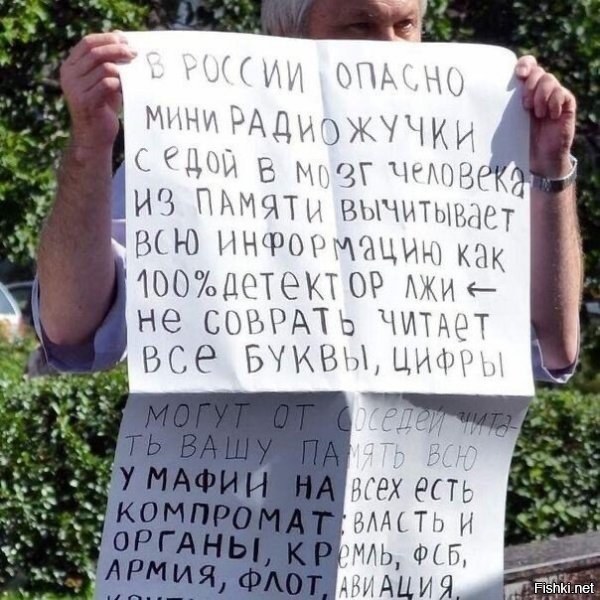 В РОССИИ ОПАСНО
МИНИ РАДИОЖУЧКИ
С ЕДОЙ В МОЗГ ЧЕЛОВЕКА
ИЗ ПАМЯТИ ВЫЧИТЫВАЕТ
ВСЮ ИНФОРМАЦИЮ КАК
100% ДЕТЕКТОР ЛЖИ ←
НЕ СОВРАТЬ ЧИТАЕТ
ВСЕ БУКВЫ, ЦИФРЫ
МОГУТ ОТ СОСЕДЕЙ ЧИТА-
ТЬ ВАШУ ПАМЯТЬ ВСЮ
У МАФИИ НА ВСЕХ ЕСТЬ
КОМПРОМАТ: ВЛАСТЬ И
ОРГАНЫ, КРЕМЛЬ, ФСБ,
АРМИЯ, ФЛОТ, АВИАЦИЯ,
Fishki.net